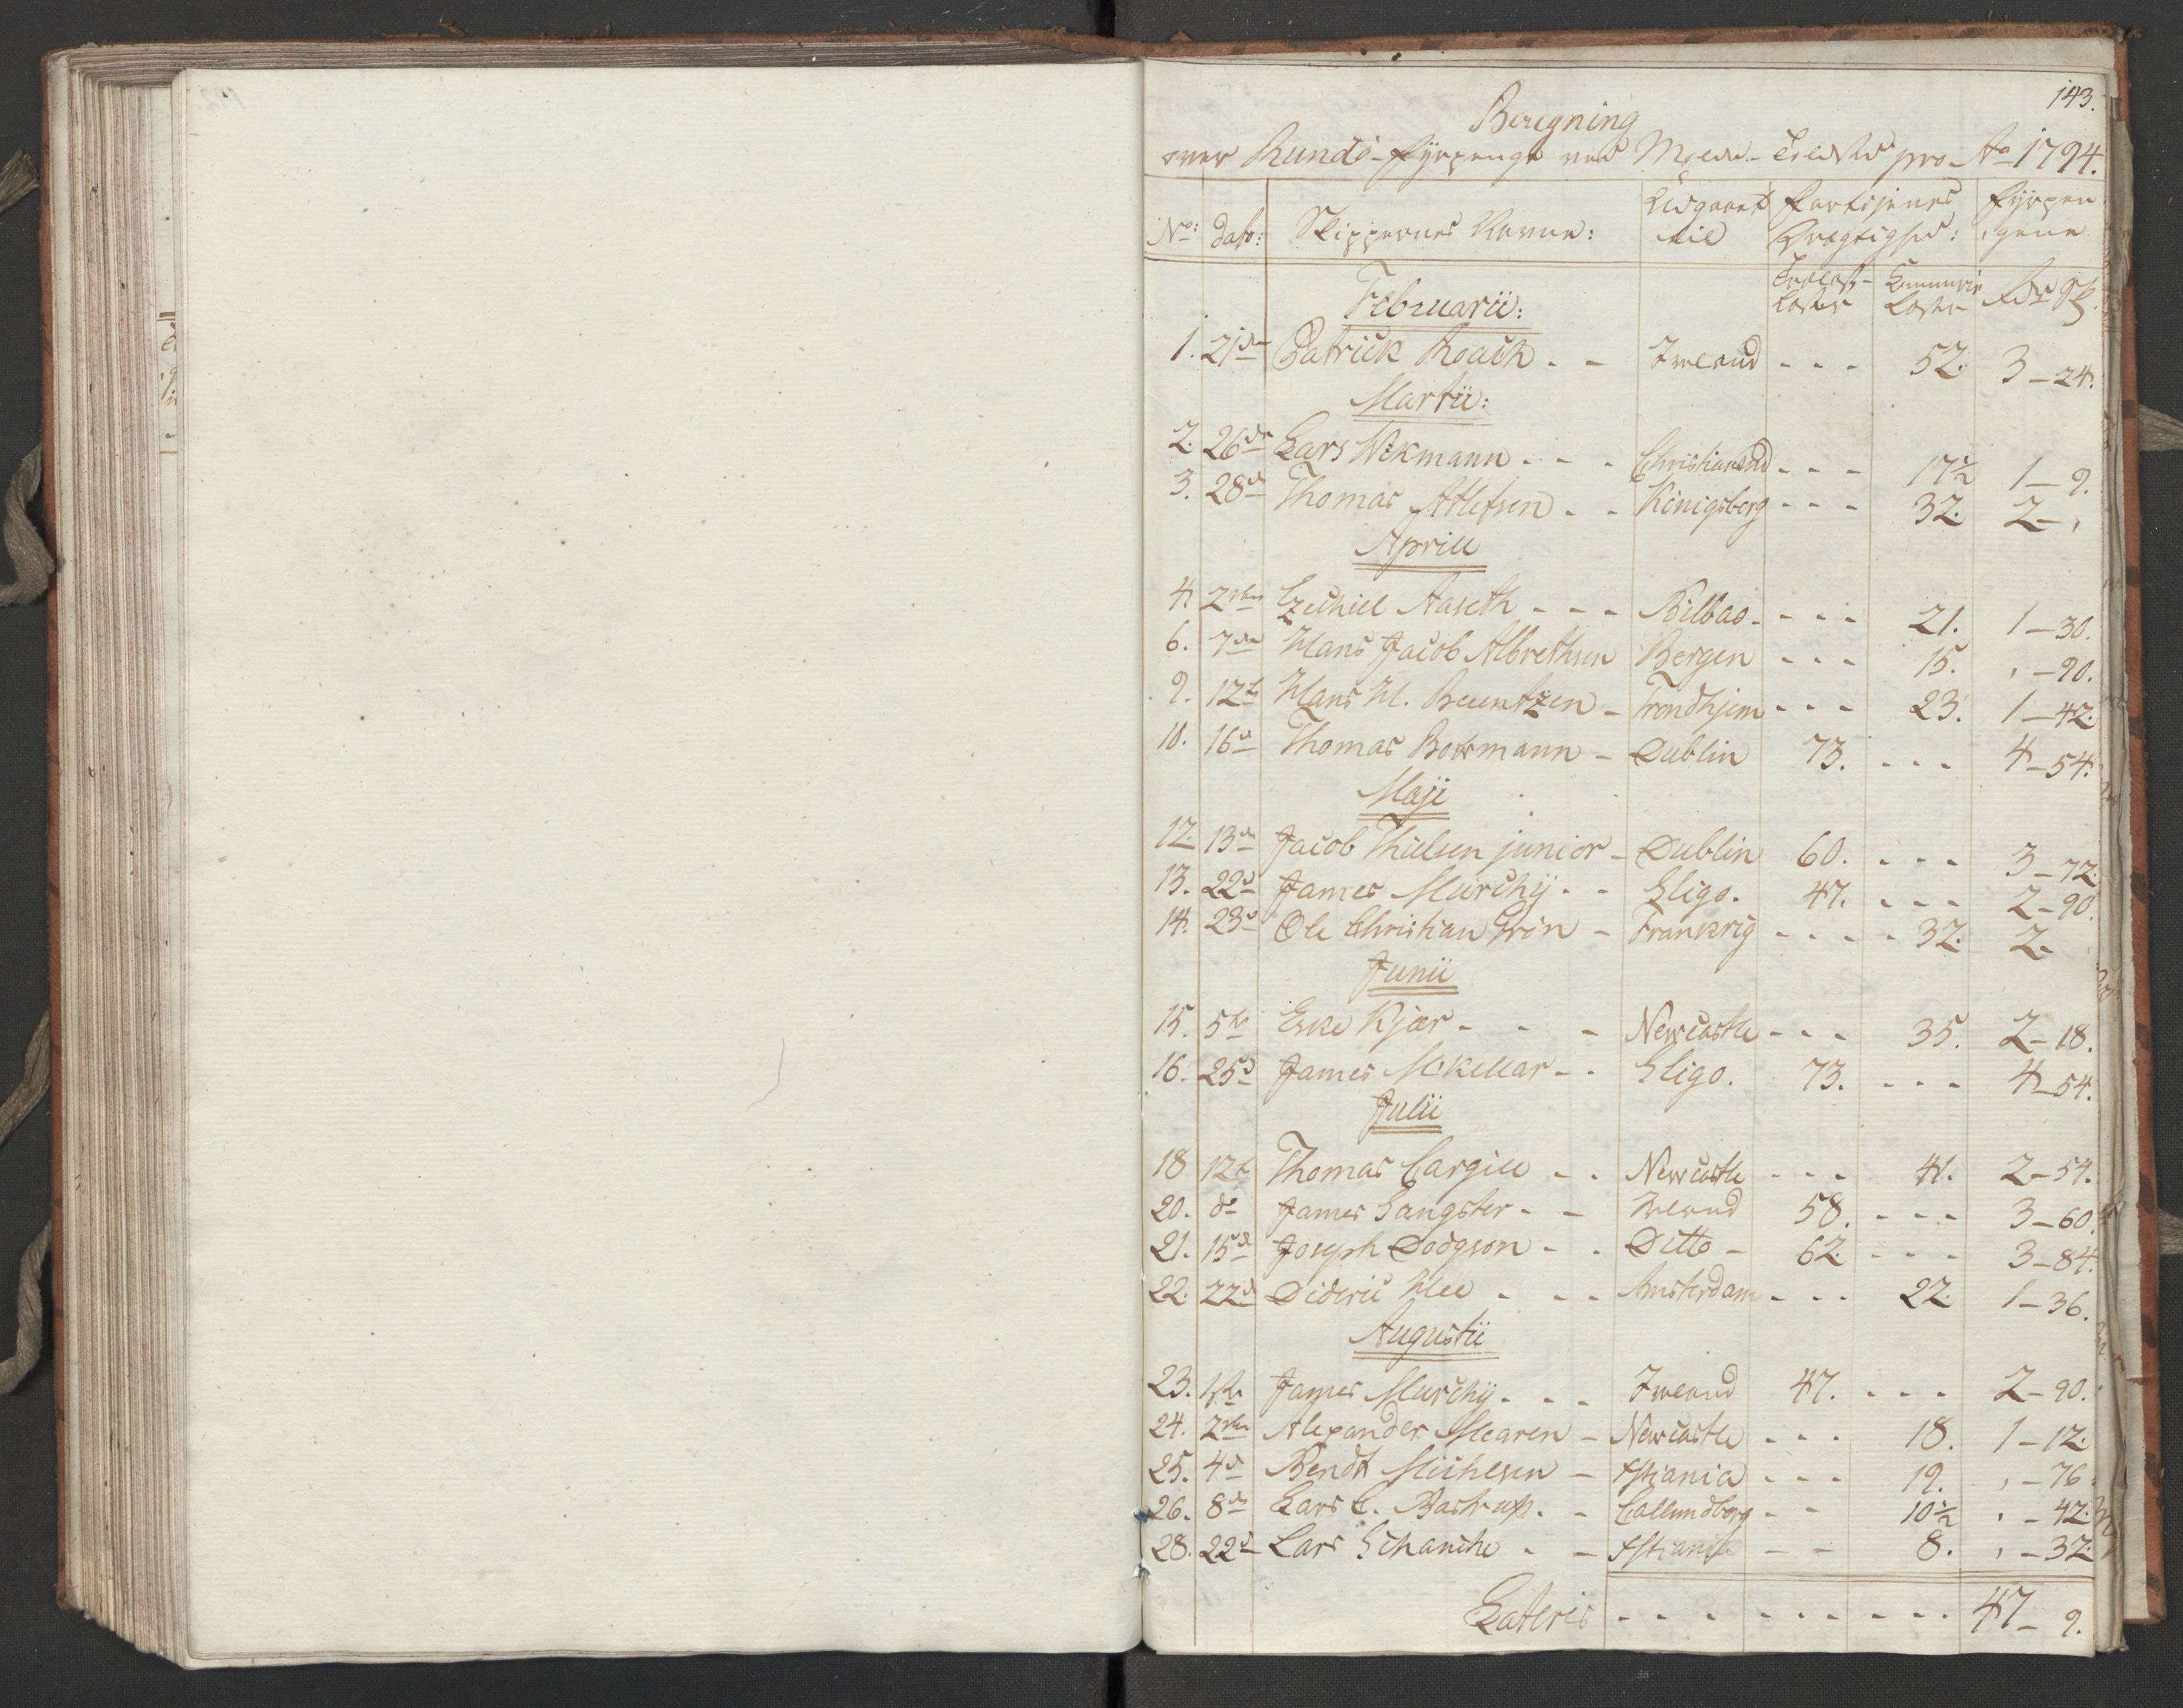 143.
Beregning
over Rundø-Fyrpenge ved Molde-Toldsted pro Ao 1794.
No: Dato: Skippernes Navne: Udgaaet til Fartøjenes Drægtighed: Fyrpengene
Træelast-Læster Commerce Læster Rdr Sk
Februarii:
1. 21de Patrick Roach - - Irland - - - 52. 3 - 24.
Martii:
2. 26de Lars Wekmann - - - Christiansund - - - 17 1/2 1 - 9.
3. 28d Thomas Atlefsen - - Königsberg - - - 32. 2 - ,
Aprill
4. 2den Ezechiel Aaseth - - - Bilbao - - - - 21. 1 - 30.
6. 7de Hans Jacob Albrethsen Bergen - - - 15. , - 90.
9. 12te Hans H. Beuntzen - Trondhjem - - - 23. 1 - 42.
10. 16d Thomas Bowmann - Dublin 73. - - - 4 - 54.
Maji
12. 13de Jacob Thielsen junior - Dublin 60. - - - 3 - 72.
13. 22d James Murchÿ - - Sligo. 47. - - - 2 - 90.
14. 23d Ole Christian Grön - Frankrig - - - - 32. 2.
Junii
15. 5te Eske Kjær - - - Newcastle - - - 35. 2 - 18.
16. 25d James McKellar - - Sligo. 73. - - - 4 - 54.
Julii
18 12te Thomas Cargill - - Newcastle - - - 41. 2 - 54.
20. do James Sangster - - Irland 58. - - - 3 - 60.
21. 15d Joseph Dodgson - - Ditto - 62. - - - 3 - 84.
22. 22d Dideric Hee - - - Amsterdam - - - 22. 1 - 36.
Augustii
23. 1ste James Murchÿ - - - Irland 47. - - - 2 - 90.
24. 2den Alexander Mearen - Newcastle - - - 18. 1 - 12.
25. 4d Bendt Michesen - Xstiania - - - 19. , - 76.
26. 8de Lars C. Bastrup. - Callundborg - - 10 1/2 , - 42.
28. 22d Lars Schanche - - Xstiania - - 8. , - 32.
Lateris - - - - - - - - - - 47 - 9.